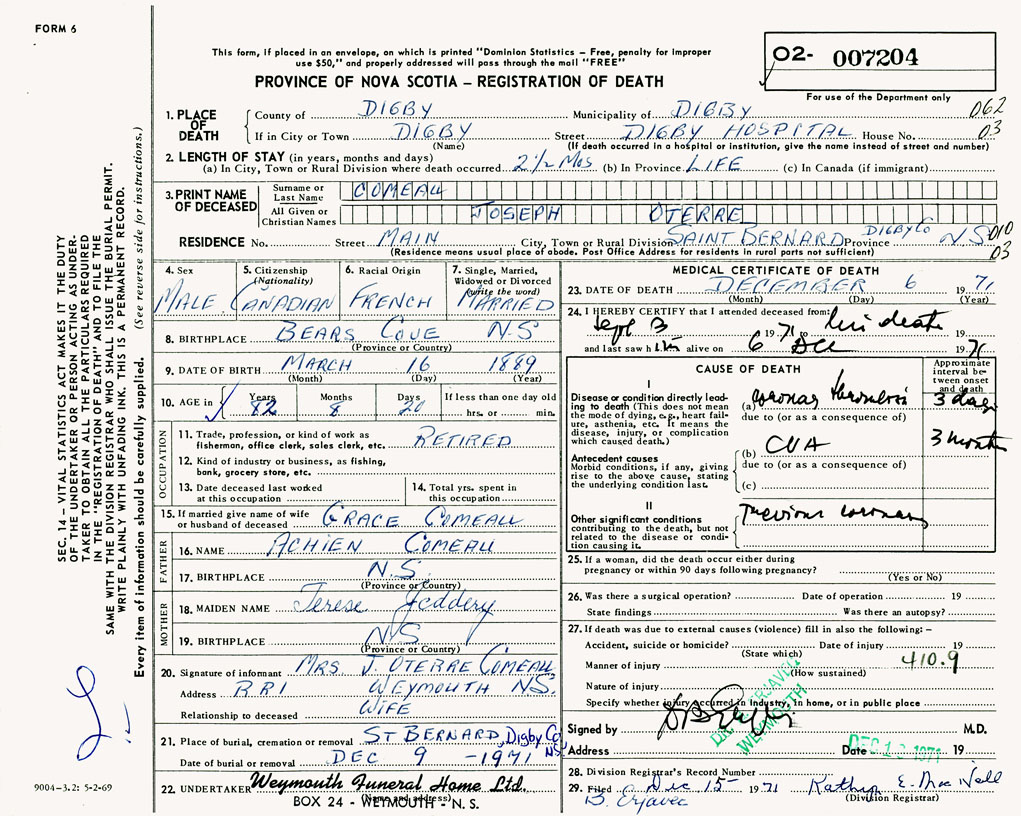 FORM 6
This form, if placed in an envelope, on which is printed "Dominion Statistics – Free, penalty for improper
use $50," and properly addressed will pass through the mail "FREE"
PROVINCE OF NOVA SCOTIA – REGISTRATION OF DEATH
02- 007204
For use of the Department only
1. PLACE OF DEATH
County of DIGBY Municipality of DIGBY 062
If in City or Town DIGBY Street DIGBY HOSPITAL House No. 03
(Name) (If death occurred in a hospital or institution, give the name instead of street and number)
2. LENGTH OF STAY (in years, months and days)
(a) In City, Town or Rural Division where death occurred 2½ Mos (b) In Province LIFE (c) In Canada (if immigrant)
3. PRINT NAME OF DECEASED
Surname or Last Name COMEAU
All Given or Christian Names JOSEPH OTERRE
RESIDENCE No. Street MAIN City, Town or Rural Division SAINT BERNARD DIGBY Co Province NS 010
(Residence means usual place of abode. Post Office Address for residents in rural parts not sufficient) 03
4. Sex MALE
5. Citizenship (Nationality) CANADIAN
6. Racial Origin FRENCH
7. Single, Married, Widowed or Divorced (write the word) MARRIED
8. BIRTHPLACE BEARS COVE N.S
(Province or Country)
9. DATE OF BIRTH MARCH 16 1889
(Month) (Day) (Year)
10. AGE in Years 82 Months 8 Days 20 If less than one day old hrs. or min.
OCCUPATION
11. Trade, profession, or kind of work as fisherman, office clerk, sales clerk, etc. RETIRED
12. Kind of industry or business, as fishing, bank, grocery store, etc.
13. Date deceased last worked at this occupation
14. Total yrs. spent in this occupation
15. If married give name of wife or husband of deceased GRACE COMEAU
FATHER
16. NAME ACHIEN COMEAU
17. BIRTHPLACE N.S.
(Province or Country)
MOTHER
18. MAIDEN NAME Terese Jeddery
19. BIRTHPLACE NS
(Province or Country)
20. Signature of informant MRS J. OTERRE COMEAU
Address RR1 WEYMOUTH NS.
Relationship to deceased WIFE
21. Place of burial, cremation or removal ST BERNARD, Digby Co NS
Date of burial or removal DEC 9 - 1971
22. UNDERTAKER Weymouth Funeral Home Ltd.
(Name and address)
BOX 24 - WEYMOUTH - N.S.
MEDICAL CERTIFICATE OF DEATH
23. DATE OF DEATH DECEMBER 6 1971
(Month) (Day) (Year)
24. I HEREBY CERTIFY that I attended deceased from:
Sept 3 1971 to his death 19
and last saw him alive on 6 Dec 1971
CAUSE OF DEATH
Approximate interval between onset and death
I
Disease or condition directly leading to death (This does not mean the mode of dying, e.g., heart failure, asthenia, etc. It means the disease, injury, or complication which caused death.)
(a) coronary thrombosis 3 days
due to (or as a consequence of)
Antecedent causes
Morbid conditions, if any, giving rise to the above cause, stating the underlying condition last.
(b) CVA 3 months
due to (or as a consequence of)
(c)
II
Other significant conditions contributing to the death, but not related to the disease or condition causing it.
Previous coronary
25. If a woman, did the death occur either during pregnancy or within 90 days following pregnancy?
(Yes or No)
26. Was there a surgical operation? Date of operation 19
State findings Was there an autopsy?
27. If death was due to external causes (violence) fill in also the following: –
Accident, suicide or homicide? Date of injury 19
(State which)
Manner of injury 410.9
(How sustained)
Nature of injury
Specify whether injury occurred in industry, in home, or in public place
Signed by M.D.
DR. B. ERJAVEC
WEYMOUTH
Address Date DEC 1971 19
28. Division Registrar's Record Number
29. Filed Dec 15 - 1971 Kathryn E. MacNeill
B. Erjavec (Division Registrar)
SEC. 14 – VITAL STATISTICS ACT MAKES IT THE DUTY
OF THE UNDERTAKER OR PERSON ACTING AS UNDER-
TAKER TO OBTAIN ALL THE PARTICULARS REQUIRED
IN THE "REGISTRATION OF DEATH" AND TO FILE THE
SAME WITH THE DIVISION REGISTRAR WHO SHALL ISSUE THE BURIAL PERMIT.
WRITE PLAINLY WITH UNFADING INK. THIS IS A PERMANENT RECORD.
Every item of information should be carefully supplied. (See reverse side for instructions.)
9004-3.2: 5-2-69